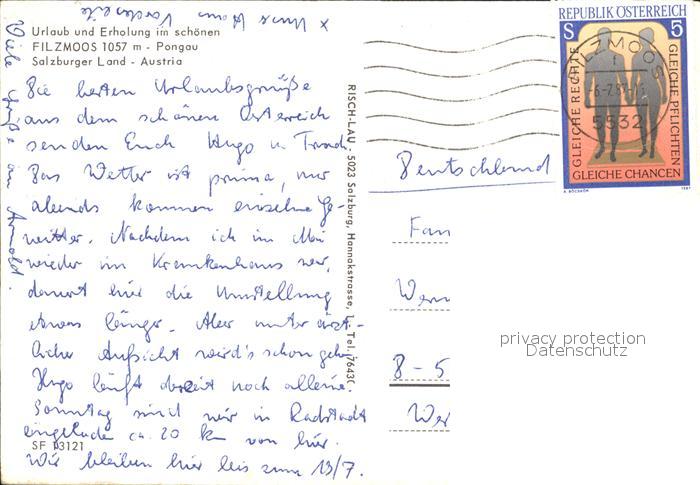 x unser Haus Vorderseite
Viele Grüße an Arnold.
Urlaub und Erholung im schönen
FILZMOOS 1057 m - Pongau
Salzburger Land - Austria
Die besten Urlaubsgrüße
aus dem schönen Österreich
senden Euch Hugo u. Traudl.
Das Wetter ist prima, nur
abends kommen einzelne Ge-
witter. Nachdem ich im Mai
wieder im Krankenhaus war,
dauert hier die Umstellung
etwas länger. Aber unter ärzt-
licher Aufsicht wird's schon gehn.
Hugo läuft derzeit noch alleine.
Sonntag sind wir in Radstadt
eingeladen ca. 20 km von hier.
SF 13121
Wir bleiben hier bis zum 19/7.
RISCH-LAU, 5023 Salzburg, Hannakstrasse, 1, Tel. 7643
REPUBLIK ÖSTERREICH
S 5
GLEICHE RECHTE
GLEICHE PFLICHTEN
GLEICHE CHANCEN
1987
FILZMOOS
5532
Deutschland
Fam
Wern
8-5
Wer
privacy protection
Datenschutz